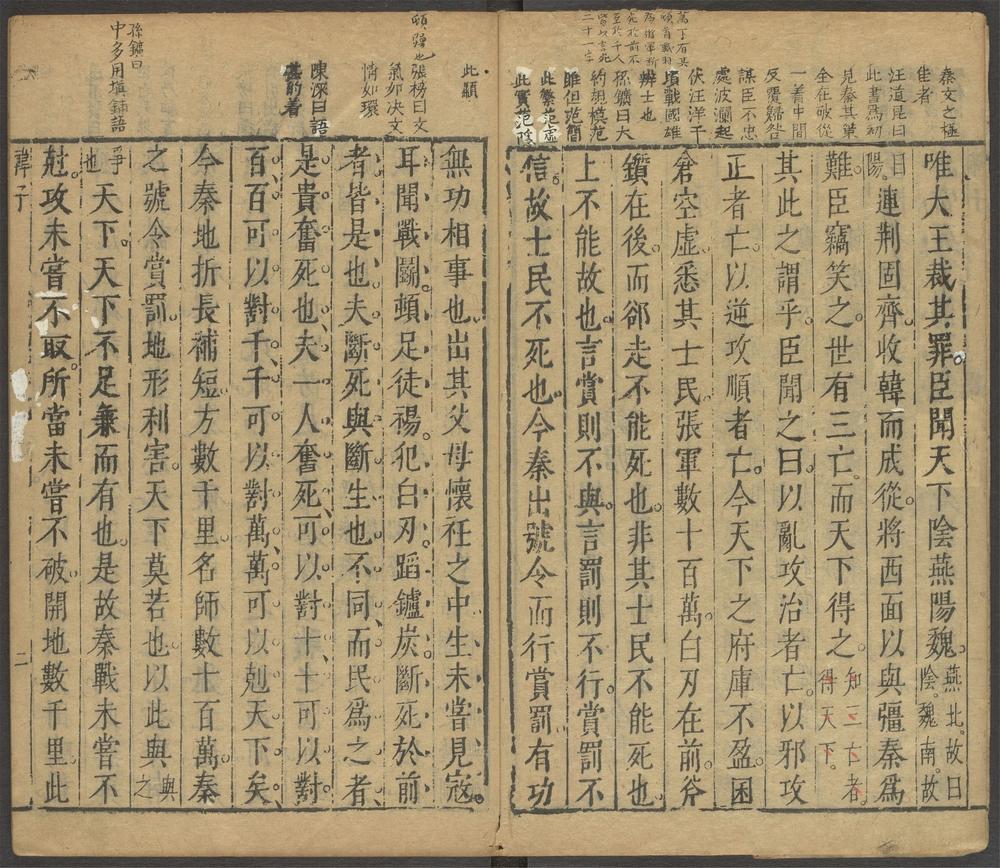 秦文之極
佳者
汪道昆曰
此書為初
見秦其筆
全在破從
一着中間
反覆歸咎
謀臣不忠
處波瀾起
伏汪洋子
項戰國雄
辨士也
孫鑛曰大
約規模范
雎但范簡
此繁范虛
此實范陰
此顯
張榜曰文
氣如決文
情如環
陳深曰語
甚的着
孫鑛曰
中多用填鋪語
唯大王裁其罪臣聞天下陰燕陽魏燕北故曰陰魏南故
曰陽連荆固齊收韓而成從將西面以與彊秦爲
難臣竊笑之世有三亡而天下得之知三亡者得天下
其此之謂乎臣聞之曰以亂攻治者亡以邪攻
正者亡以逆攻順者亡今天下之府庫不盈囷
倉空虛悉其士民張軍數十百萬白刃在前斧
鑕在後而郤走不能死也非其士民不能死也
上不能故也言賞則不與言罰則不行賞罰不
信故士民不死也今秦出號令而行賞罰有功
無功相事也出其父母懷衽之中生未嘗見寇
耳聞戰鬬頓足徒裼犯白刃蹈鑪炭斷死於前
者皆是也夫斷死與斷生也不同而民爲之者
是貴奮死也夫一人奮死可以對十十可以對
百百可以對千千可以對萬萬可以剋天下矣
今秦地折長補短方數千里名師數十百萬秦
之號令賞罰地形利害天下莫若也以此與與之
爭也天下天下不足兼而有也是故秦戰未嘗不
尅攻未嘗不取所當未嘗不破開地數千里此
韓子
二